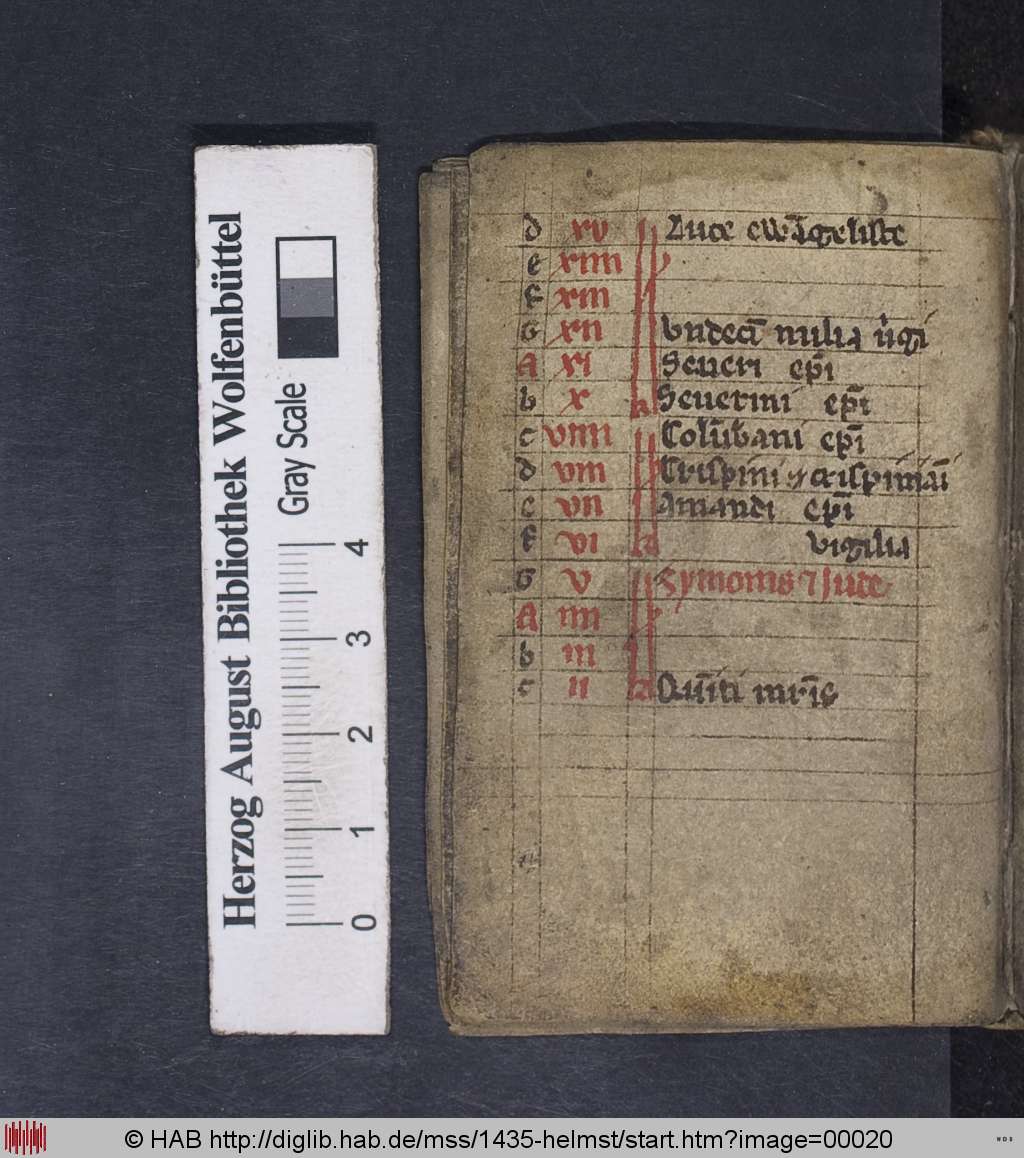 Herzog August Bibliothek Wolfenbüttel
Gray Scale
0 1 2 3 4
d xv Luce ewāgeliste
e xiiii
f xiii
G xii Undeci̅ milia v̄gi
A xi Seueri ep̄i
b x Seuerini ep̄i
c viiii Colūbani ep̄i
d viii Crispini & crispiniāi
e vii Amandi ep̄i
f vi vigilia
G v Symonis & Jude
A iiii
b iii
c ii Quīti mr̄is
© HAB http://diglib.hab.de/mss/1435-helmst/start.htm?image=00020